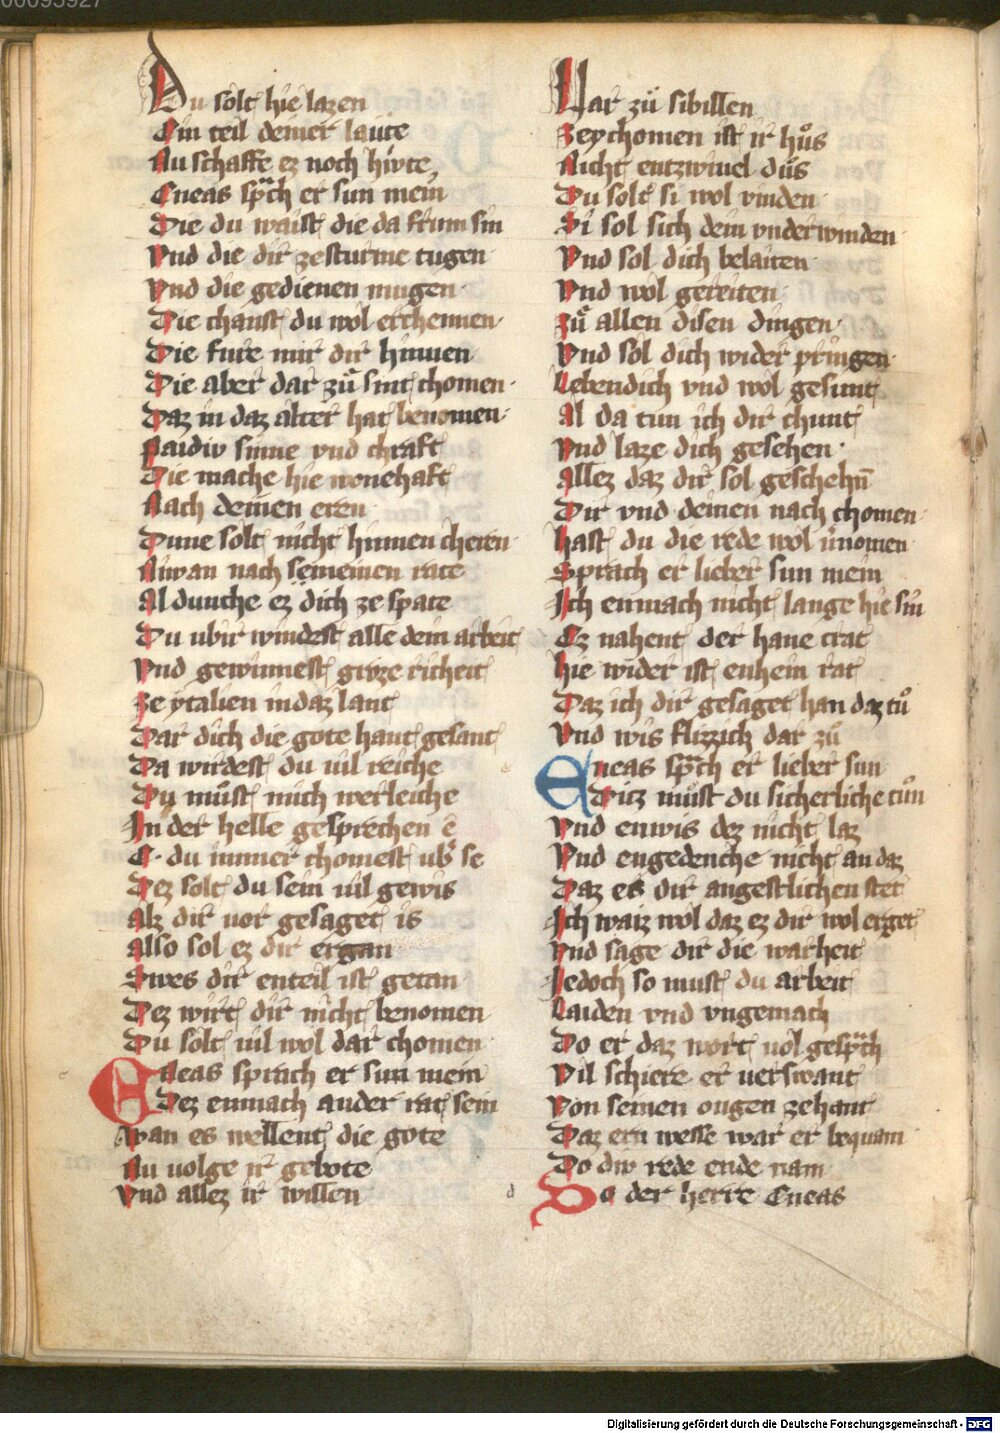 00095927
Du solt hie lazen
Ein teil deiner laute
Nu schaffe ez noch hivte
Eneas sprach er sun mein
Die du waist die da frum sin
Vnd die dir ze sturme tugen
Vnd die gedienen mugen
Die chanst du wol erchennen
Die fure mit dir hinnen
Die aber dar zuͦ sint chomen
Daz in daz alter hat benomen
Paidiv sinne vnd chraft
Die mache hie wonehaft
Nach deinen eren
Dune solt nicht hinnen cheren
Niwan nach seinem rate
Al dunche ez dich ze spate
Du vbir windest alle dein arbeit
Vnd gewinnest groze richeit
Ze ytalien in daz lant
Dar dich die gote hant gesant
Da wirdest du uil reiche
Du muͦst mich werleiche
In der helle gesprechen ê
E du immer chomest ubˀ se
Dez solt du sein uil gewis
Alz dir uor gesaget is
Also sol ez dir ergan
Swes dir enteil ist getan
Dez wirt dir nicht benomen
Du solt uil wol dar chomen
Eneas sprach er sun mein
Dez enmach ander rat sein
Wan es wellent die gote
Nu uolge ir gebote
Vnd allez ir willen
Var zuͦ sibillen
Zey chomen ist ir huͦs
Nicht entzwiuel duͦs
Du solt si wol vinden
Si sol sich dein vnderwinden
Vnd sol dich belaiten
Vnd wol gereiten
Zuͦ allen disen dingen
Vnd sol dich wider pringen
Lebendich vnd wol gesunt
Al da tun ich dir chunt
Vnd laze dich gesehen
Allez daz dir sol geschehn̄
Dir vnd deinen nach chomen
hast du die rede wol v̓nomen
Sprach er lieber sun mein
Ich enmach nicht lange hie sin
Ez nahent der hane crat
hie wider ist enhein rat
Daz ich dir gesaget han daz tuͦ
Vnd wis flizzich dar zuͦ
Eneas sprach er lieber sun
Ditz muͦst du sicherliche tuͦn
Vnd enwis dez nicht laz
Vnd engedenche nicht an daz
Daz es dir angestlichen stet
Ich waiz wol daz ez dir wol erget
Vnd sage dir die warheit
Iedoch so must du arbeit
Laiden vnd vngemach
Do er daz wort uol gesprach
Vil schiere er uerswant
Von seinen ougen zehant
Daz ern wesse war er bequam
Do div rede ende nam
d
Do der herre Eneas
Digitalisierung gefördert durch die Deutsche Forschungsgemeinschaft - DFG